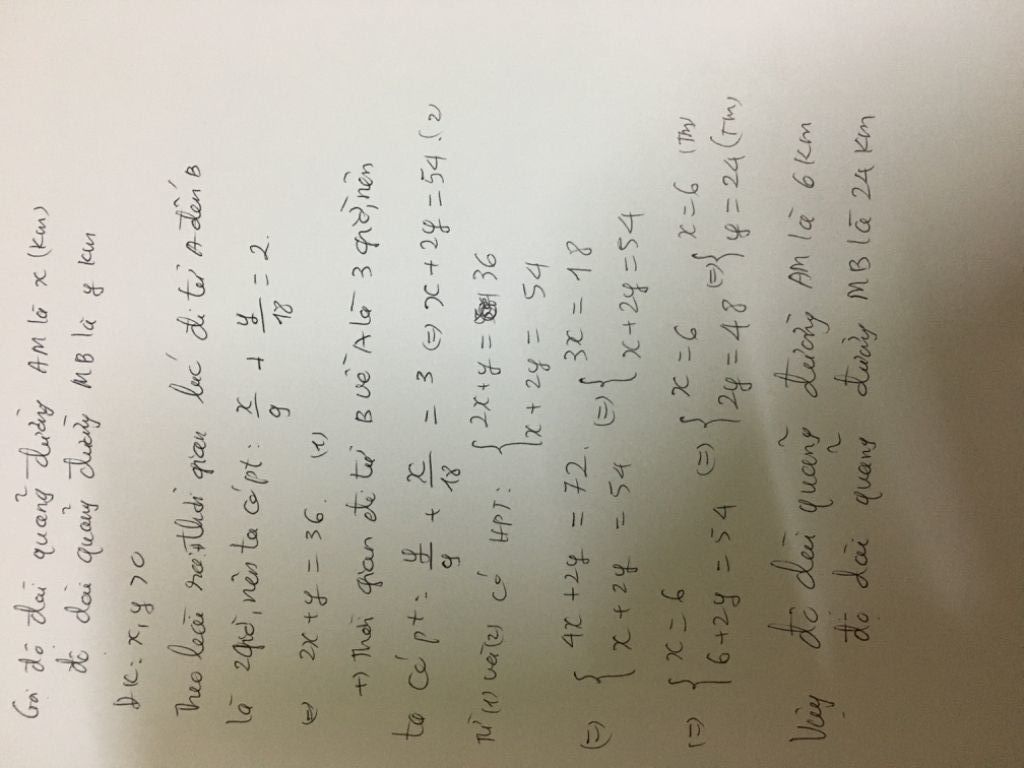 Gọi độ dài quãng đường AM là x (km)
độ dài quãng đường MB là y km
ĐK: x, y > 0
Theo bài ra, thời gian lúc đi từ A đến B
là 2 giờ, nên ta có pt: x/9 + y/18 = 2.
(=) 2x + y = 36. (1)
+) Thời gian đi từ B về A là 3 giờ, nên
ta có pt: y/9 + x/18 = 3 (=) x + 2y = 54. (2)
Từ (1) và (2) có HPT: { 2x + y = 36
x + 2y = 54
(=) { 4x + 2y = 72. (=) { 3x = 18
x + 2y = 54 x + 2y = 54
(=) { x = 6 (=) { x = 6 (=) { x = 6 (TM)
6 + 2y = 54 2y = 48 y = 24 (TM)
Vậy độ dài quãng đường AM là 6 km
độ dài quãng đường MB là 24 km